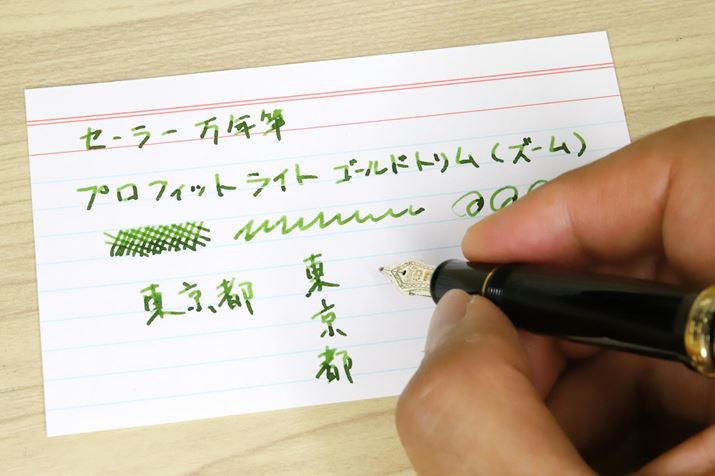 セーラー万年筆
プロフィットライト ゴールドトリム(ズーム)
東京都
東
京
都